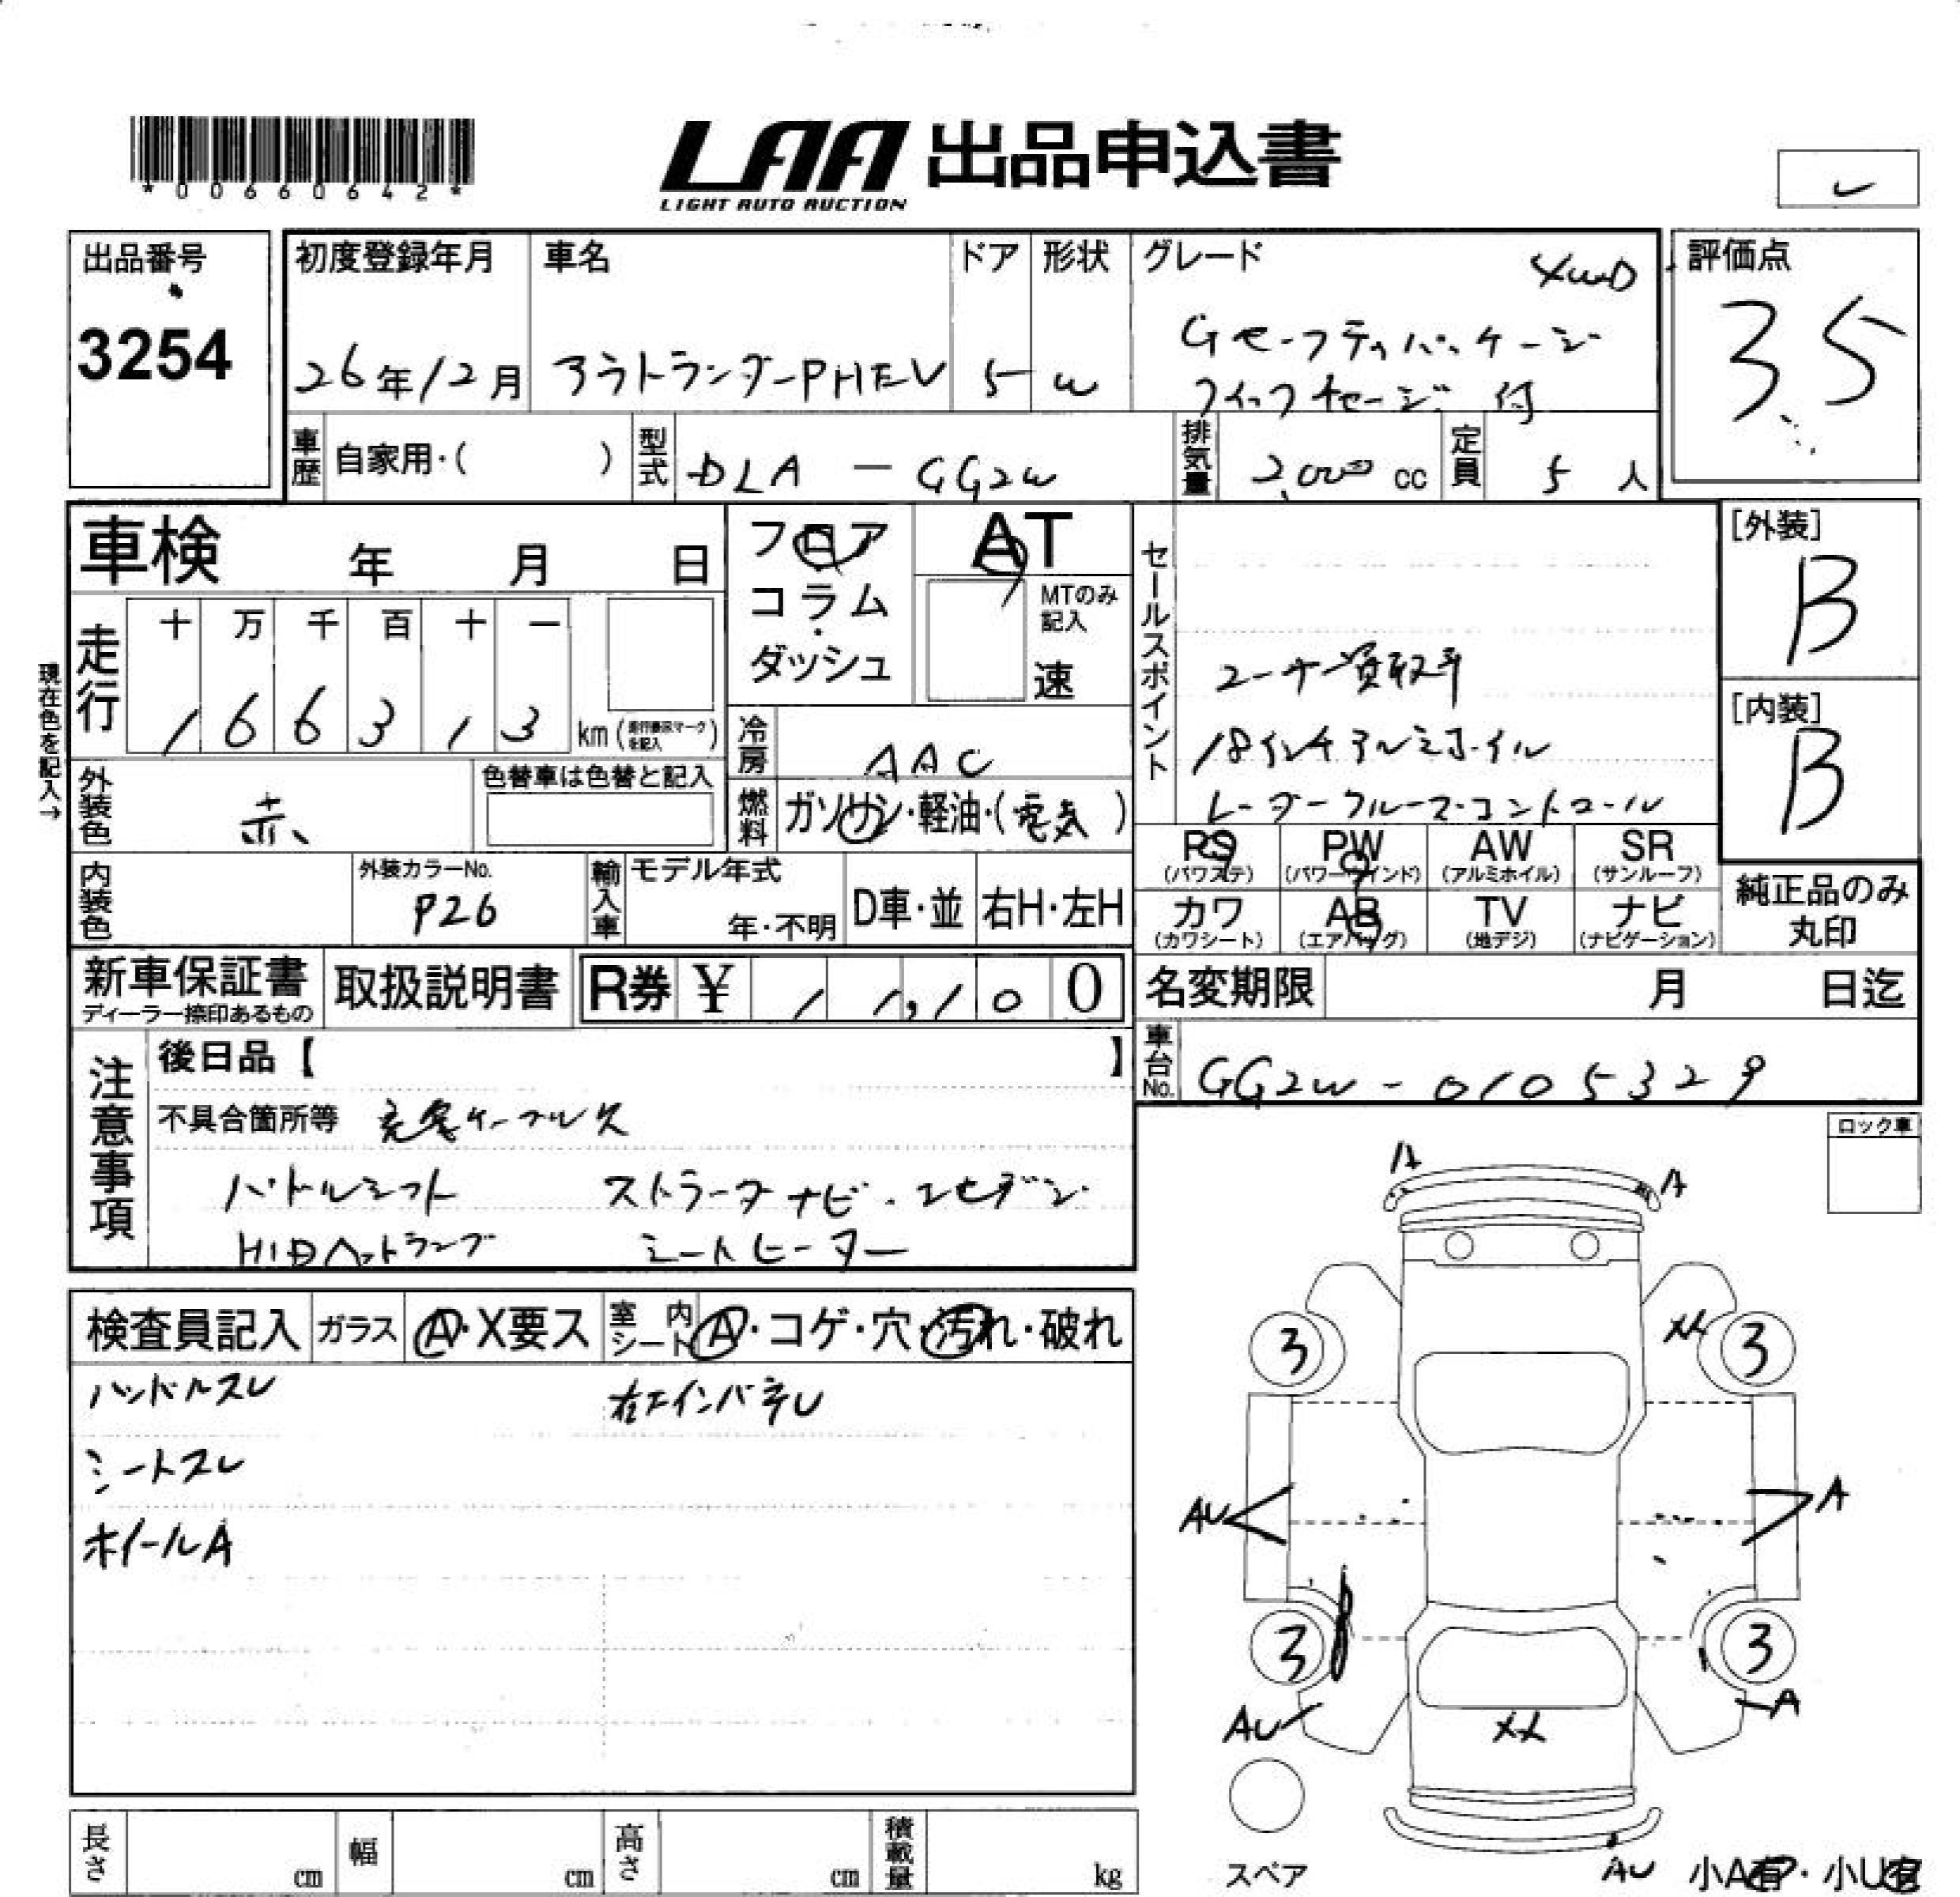 *00660642*
LAA 出品申込書
LIGHT AUTO AUCTION
出品番号
3254
初度登録年月
26年12月
車名
アウトランダーPHEV
ドア
5
形状
W
グレード
4WD
Gセーフティパッケージ
クイックチャージ 付
評価点
3.5
車歴
自家用・( )
型式
DLA - GG2W
排気量
2,000 cc
定員
5 人
車検 年 月 日
フロア
コラム
ダッシュ
AT
MTのみ記入
速
セールスポイント
ユーザー買取車
18インチアルミホイル
レーダークルーズコントロール
[外装]
B
[内装]
B
現在色を記入→
走行
十 万 千 百 十 一
1 6 6 3 1 3 km
冷房
AAC
外装色
赤
色替車は色替と記入
燃料
ガソリン・軽油・(電気)
PS (パワステ)
PW (パワーウインド)
AW (アルミホイル)
SR (サンルーフ)
カワ (カワシート)
AB (エアバッグ)
TV (地デジ)
ナビ (ナビゲーション)
純正品のみ
丸印
内装色
外装カラーNo.
P26
輸入車
モデル年式
年・不明
D車・並
右H・左H
新車保証書
ディーラー捺印あるもの
取扱説明書
R券 ¥ 1 1,1 0 0
名変期限 月 日迄
車台No.
GG2W - 0105329
注意事項
後日品【 】
不具合箇所等 充電ケーブル欠
パドルシフト ストラーダナビ・ワンセグ
HIDヘッドランプ シートヒーター
ロック車
検査員記入
ガラス
A・X要ス
室内シート
A・コゲ・穴・汚れ・破れ
ハンドルスレ
右エインパネU
シートスレ
ホイールA
A
A
3
XX
3
AU
A
3
3
AU
A
XX
スペア
AU
小A有・小U有
長さ cm
幅 cm
高さ cm
積載量 kg